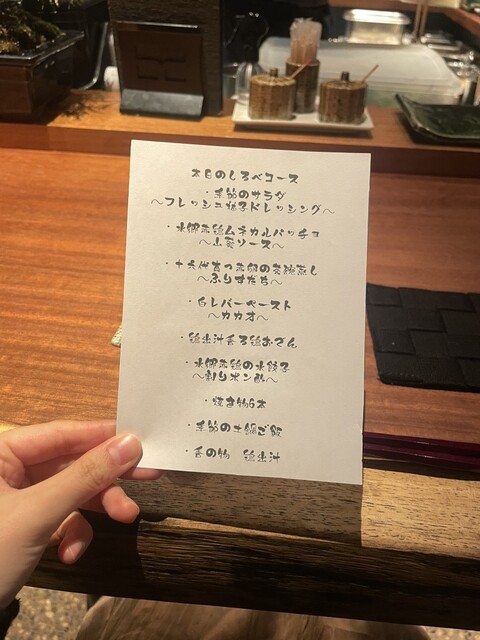 本日のしるべコース
・季節のサラダ
〜フレッシュ柚子ドレッシング〜
・水郷赤鶏ムネカルパッチョ
〜山葵ソース〜
・十六代真っ赤卵の茶碗蒸し
〜ふりすだち〜
・白レバーペースト
〜カカオ〜
・鶏出汁香る鶏おでん
・水郷赤鶏の水餃子
〜割りポン酢〜
・焼き物6本
・季節の土鍋ご飯
・香の物 鶏出汁